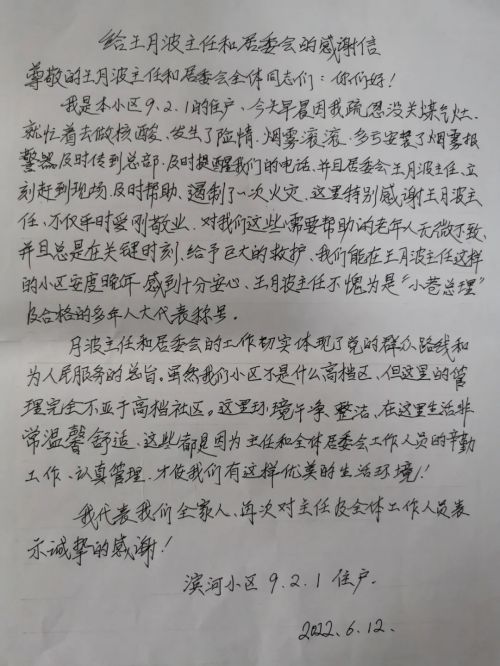 给王月波主任和居委会的感谢信
尊敬的王月波主任和居委会全体同志们：你们好！
我是本小区9.2.1的住户，今天早晨因我疏忽没关煤气灶.
就忙着去做核酸、发生了险情.烟雾滚滚.多亏安装了烟雾报
警器及时传到总部.及时提醒我们的电话.并且居委会王月波主任、立
刻赶到现场.及时帮助、遏制了一次火灾.这里特别感谢王月波主
任、不仅平时爱刚敬业.对我们这些需要帮助的老年人无微不致、
并且总是在关键时刻、给予巨大的救护、我们能在王月波主任这样
的小区安度晚年.感到十分安心、王月波主任不愧为是“小巷总理”
及合格的多年人大代表称号。
月波主任和居委会的工作切实体现了党的群众路线和
为人民服务的总旨。虽然我们小区不是什么高档区、但这里的管
理完全不亚于高档社区。这里环境干净、整洁、在这里生活非
常温馨舒适、这些都是因为主任和全体居委会工作人员的辛勤
工作、认真管理.才使我们有这样优美的生活环境！
我代表我们全家人、再次对主任及全体工作人员表
示诚挚的感谢！
滨河小区9.2.1住户.
2022.6.12.